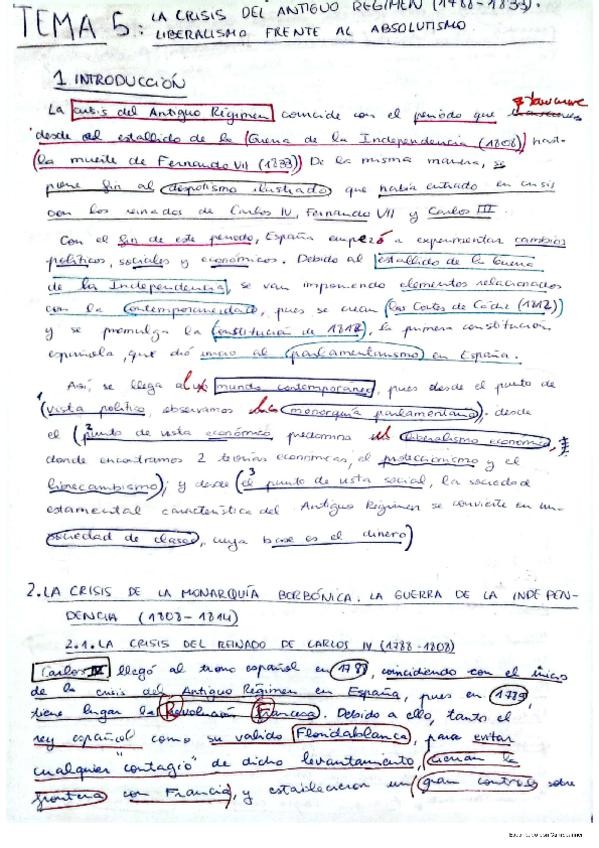 TEMA 5: LA CRISIS DEL ANTIGUO RÉGIMEN (1788-1833).
LIBERALISMO FRENTE AL ABSOLUTISMO.
1 INTRODUCCIÓN
La crisis del Antiguo Régimen coincide con el periodo que
desde el estallido de la (Guerra de la Independencia (1808)
(la muerte de Fernando VII (1833)) De la misma manera, se
pone fin al despotismo ilustrado que había entrado en crisis
con los reinados de Carlos IV, Fernando VII y Carlos III.
Con el fin de este periodo, España empezó a experimentar cambios
políticos, sociales y económicos. Debido al estallido de la Guerra
de la Independencia, se van imponiendo elementos relacionados
con la contemporaneidad, pues se crean (las Cortes de Cádiz (1812))
y se promulga la constitución de 1812, la primera constitución
española, que dió inicio al parlamentarismo en España.
Así, se llega al mundo contemporáneo, pues desde el punto de
1 (vista político, observamos monarquía parlamentaria); desde
el (2 punto de vista económico predomina el liberalismo económico,
donde encontramos 2 teorías económicas, el proteccionismo y el
librecambismo); y desde (el 3 punto de vista social, la sociedad
estamental característica del Antiguo Régimen se convierte en una
sociedad de clases, cuya base es el dinero)
2. LA CRISIS DE LA MONARQUÍA BORBÓNICA. LA GUERRA DE LA INDEPEN-
DENCIA (1808-1814)
2.1. LA CRISIS DEL REINADO DE CARLOS IV (1788-1808)
Carlos IV llegó al trono español en 1788, coincidiendo con el inicio
de la crisis del Antiguo Régimen en España, pues en 1789,
tiene lugar la Revolución Francesa. Debido a ello, tanto el
rey español como su valido Floridablanca, para evitar
cualquier "contagio" de dicho levantamiento, cierran la
frontera con Francia, y establecieron un (gran control sobre